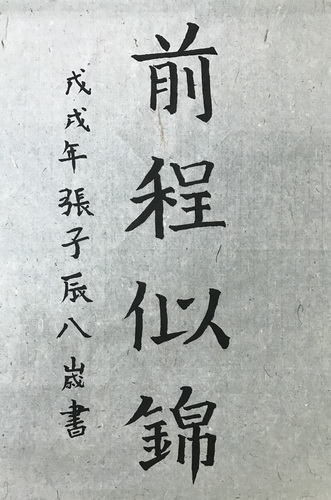 前程似錦
戊戌年張子辰八歲書